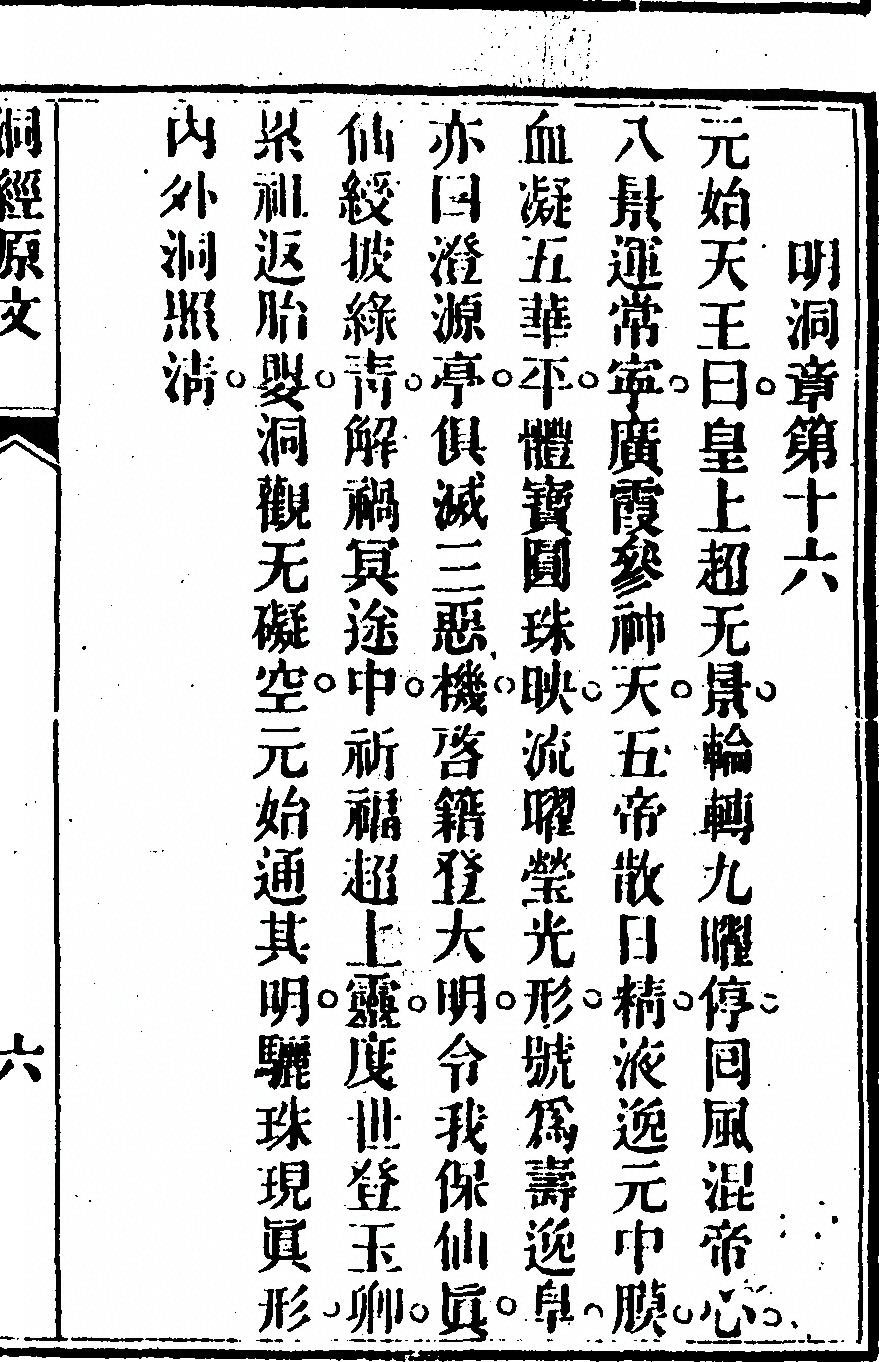 明洞章第十六
元始天王曰。皇上超无景。輪轉九曜停。回風混帝心。
八景運常寧。廣霞參神天。五帝散日精。液逸元中膜。
血凝五華平。體寶圓珠映。流曜瑩光形。號爲壽逸阜。
亦曰澄源亭。俱滅三惡機。啓籍登大明。令我保仙眞。
仙綬披綠靑。解禍冥途中。祈福超上靈。度世登玉卿。
累祖返胎嬰。洞觀无礙空。元始通其明。驪珠現眞形
內外洞照淸。
洞經原文
六